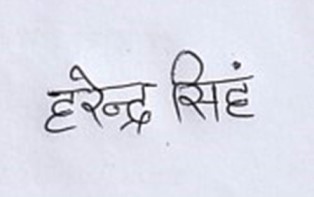 हरेन्द्र सिहं